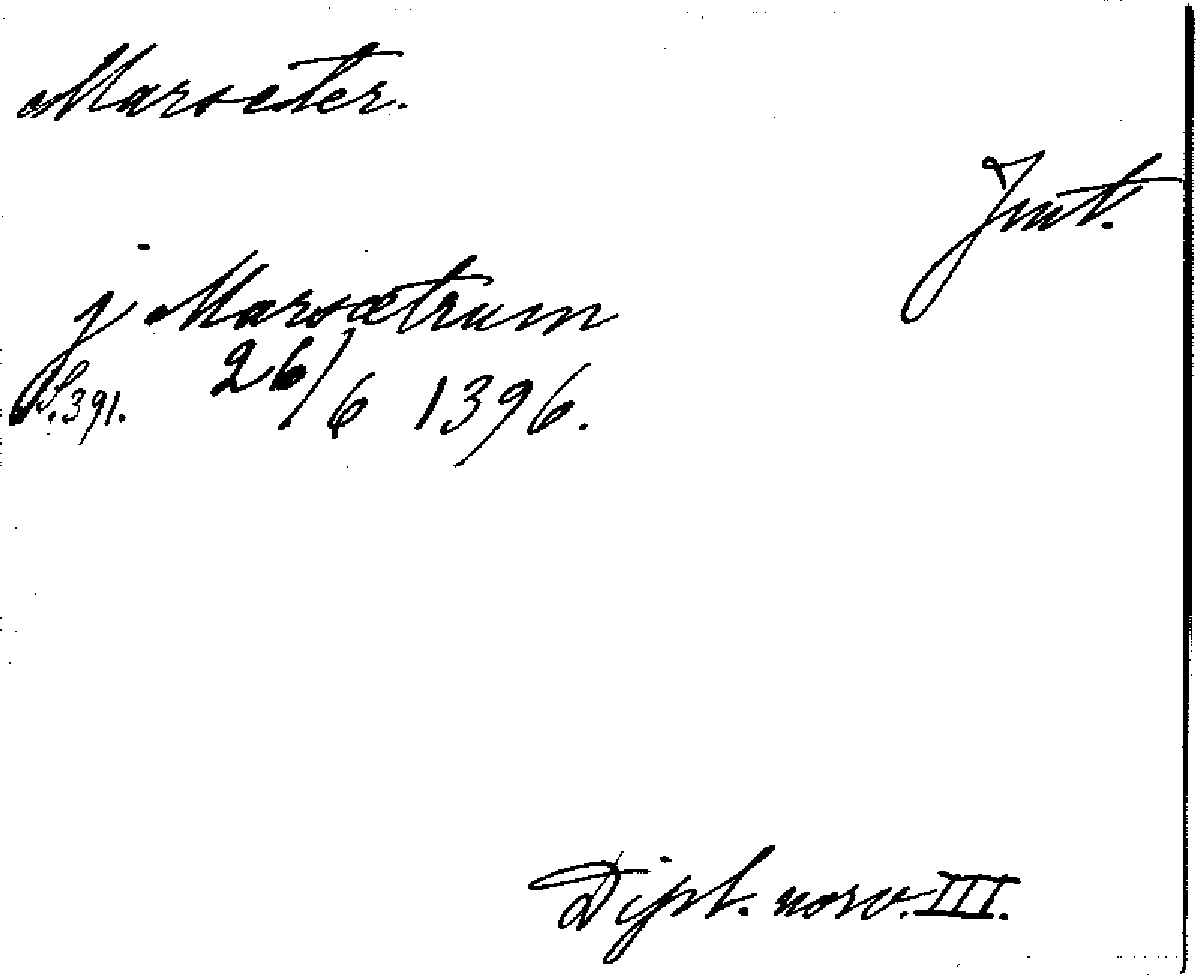 Marsæter.
Jmt.
j Marsætrum
S. 391. 26/6 1396.
Dipl. norv. III.